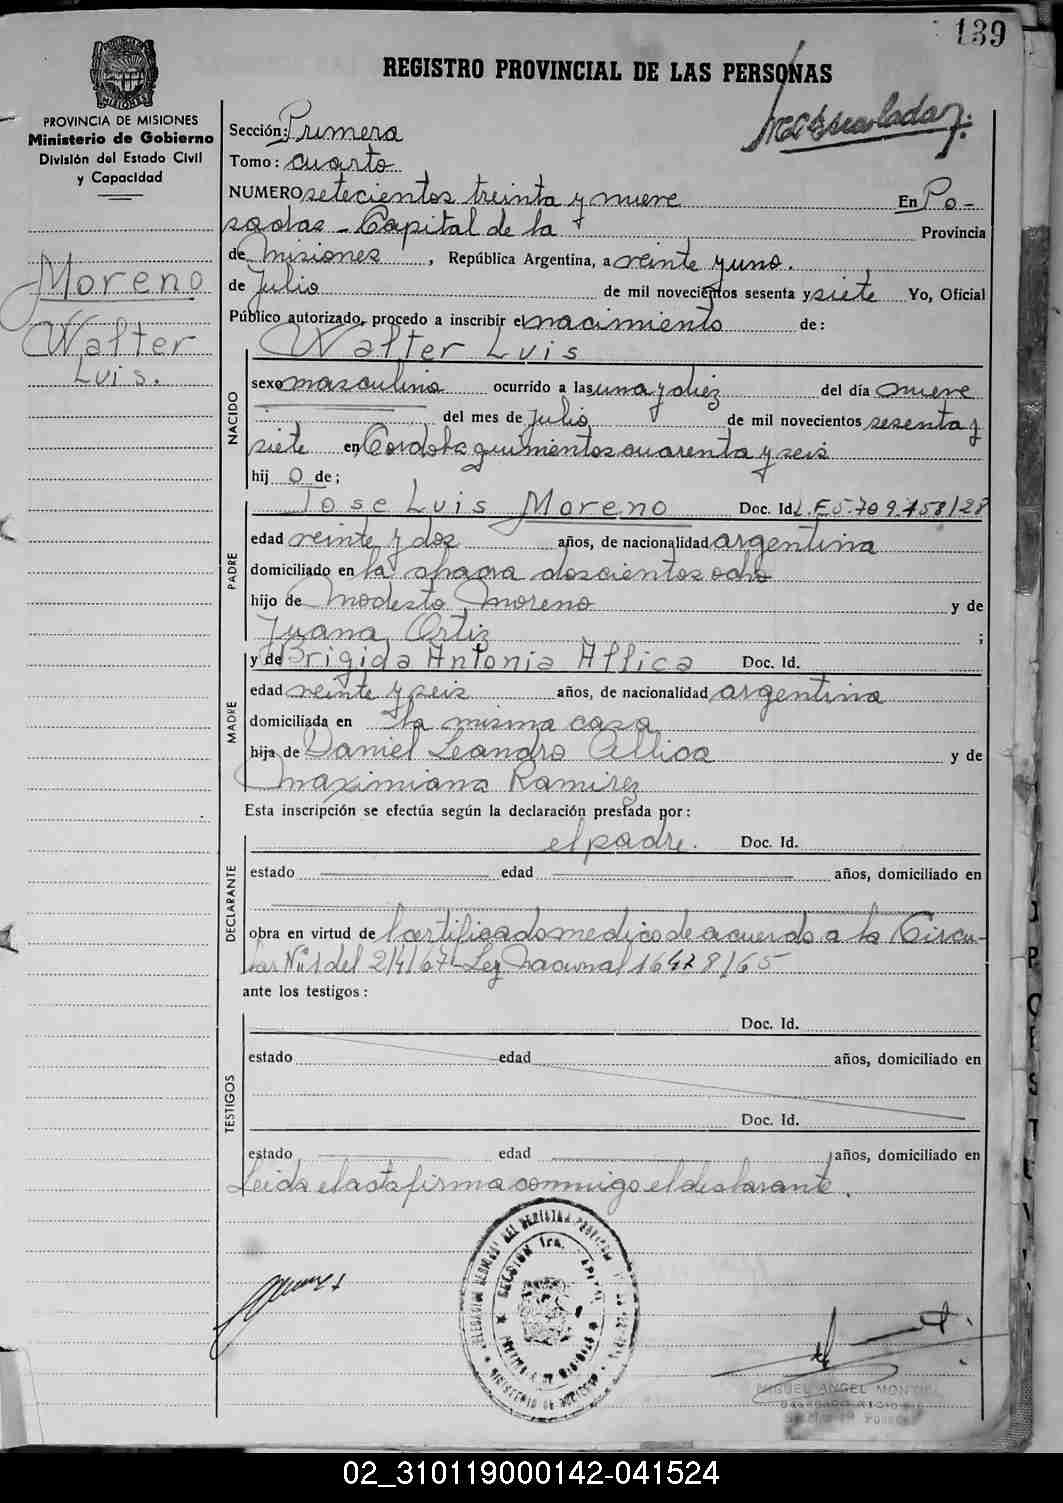 139
REGISTRO PROVINCIAL DE LAS PERSONAS
PROVINCIA DE MISIONES
Ministerio de Gobierno
División del Estado Civil
y Capacidad
Moreno
Walter
Luis.
Sección: Primera
Tomo: cuarto
NUMERO setecientos treinta y nueve En Po-
sadas - Capital de la Provincia
de Misiones, República Argentina, a veinte y uno.
de Julio de mil novecientos sesenta y siete Yo, Oficial
Público autorizado, procedo a inscribir el nacimiento de:
Walter Luis
NACIDO
sexo masculino ocurrido a las una y diez del día nueve
del mes de Julio de mil novecientos sesenta y
siete en Cordoba quinientos cuarenta y seis
hij o de;
PADRE
Jose Luis Moreno Doc. Id. L.E 5.709.458/28
edad veinte y dos años, de nacionalidad argentina
domiciliado en la chacra doscientos ocho
hijo de Modesto Moreno y de
Juana Ortiz ;
MADRE
y de Brigida Antonia Allica Doc. Id.
edad veinte y seis años, de nacionalidad argentina
domiciliada en la misma casa
hija de Daniel Leandro Allica y de
Maximiana Ramirez
Esta inscripción se efectúa según la declaración prestada por:
DECLARANTE
el padre. Doc. Id.
estado edad años, domiciliado en
obra en virtud de l certificado medico de acuerdo a la Circu-
lar Nº 1 del 2/4/67 - Ley Nacional 16478/65
ante los testigos:
TESTIGOS
Doc. Id.
estado edad años, domiciliado en
Doc. Id.
estado edad años, domiciliado en
Leida el acta firma conmigo el declarante.
SECCION 1ra.
MIGUEL ANGEL
02_310119000142-041524